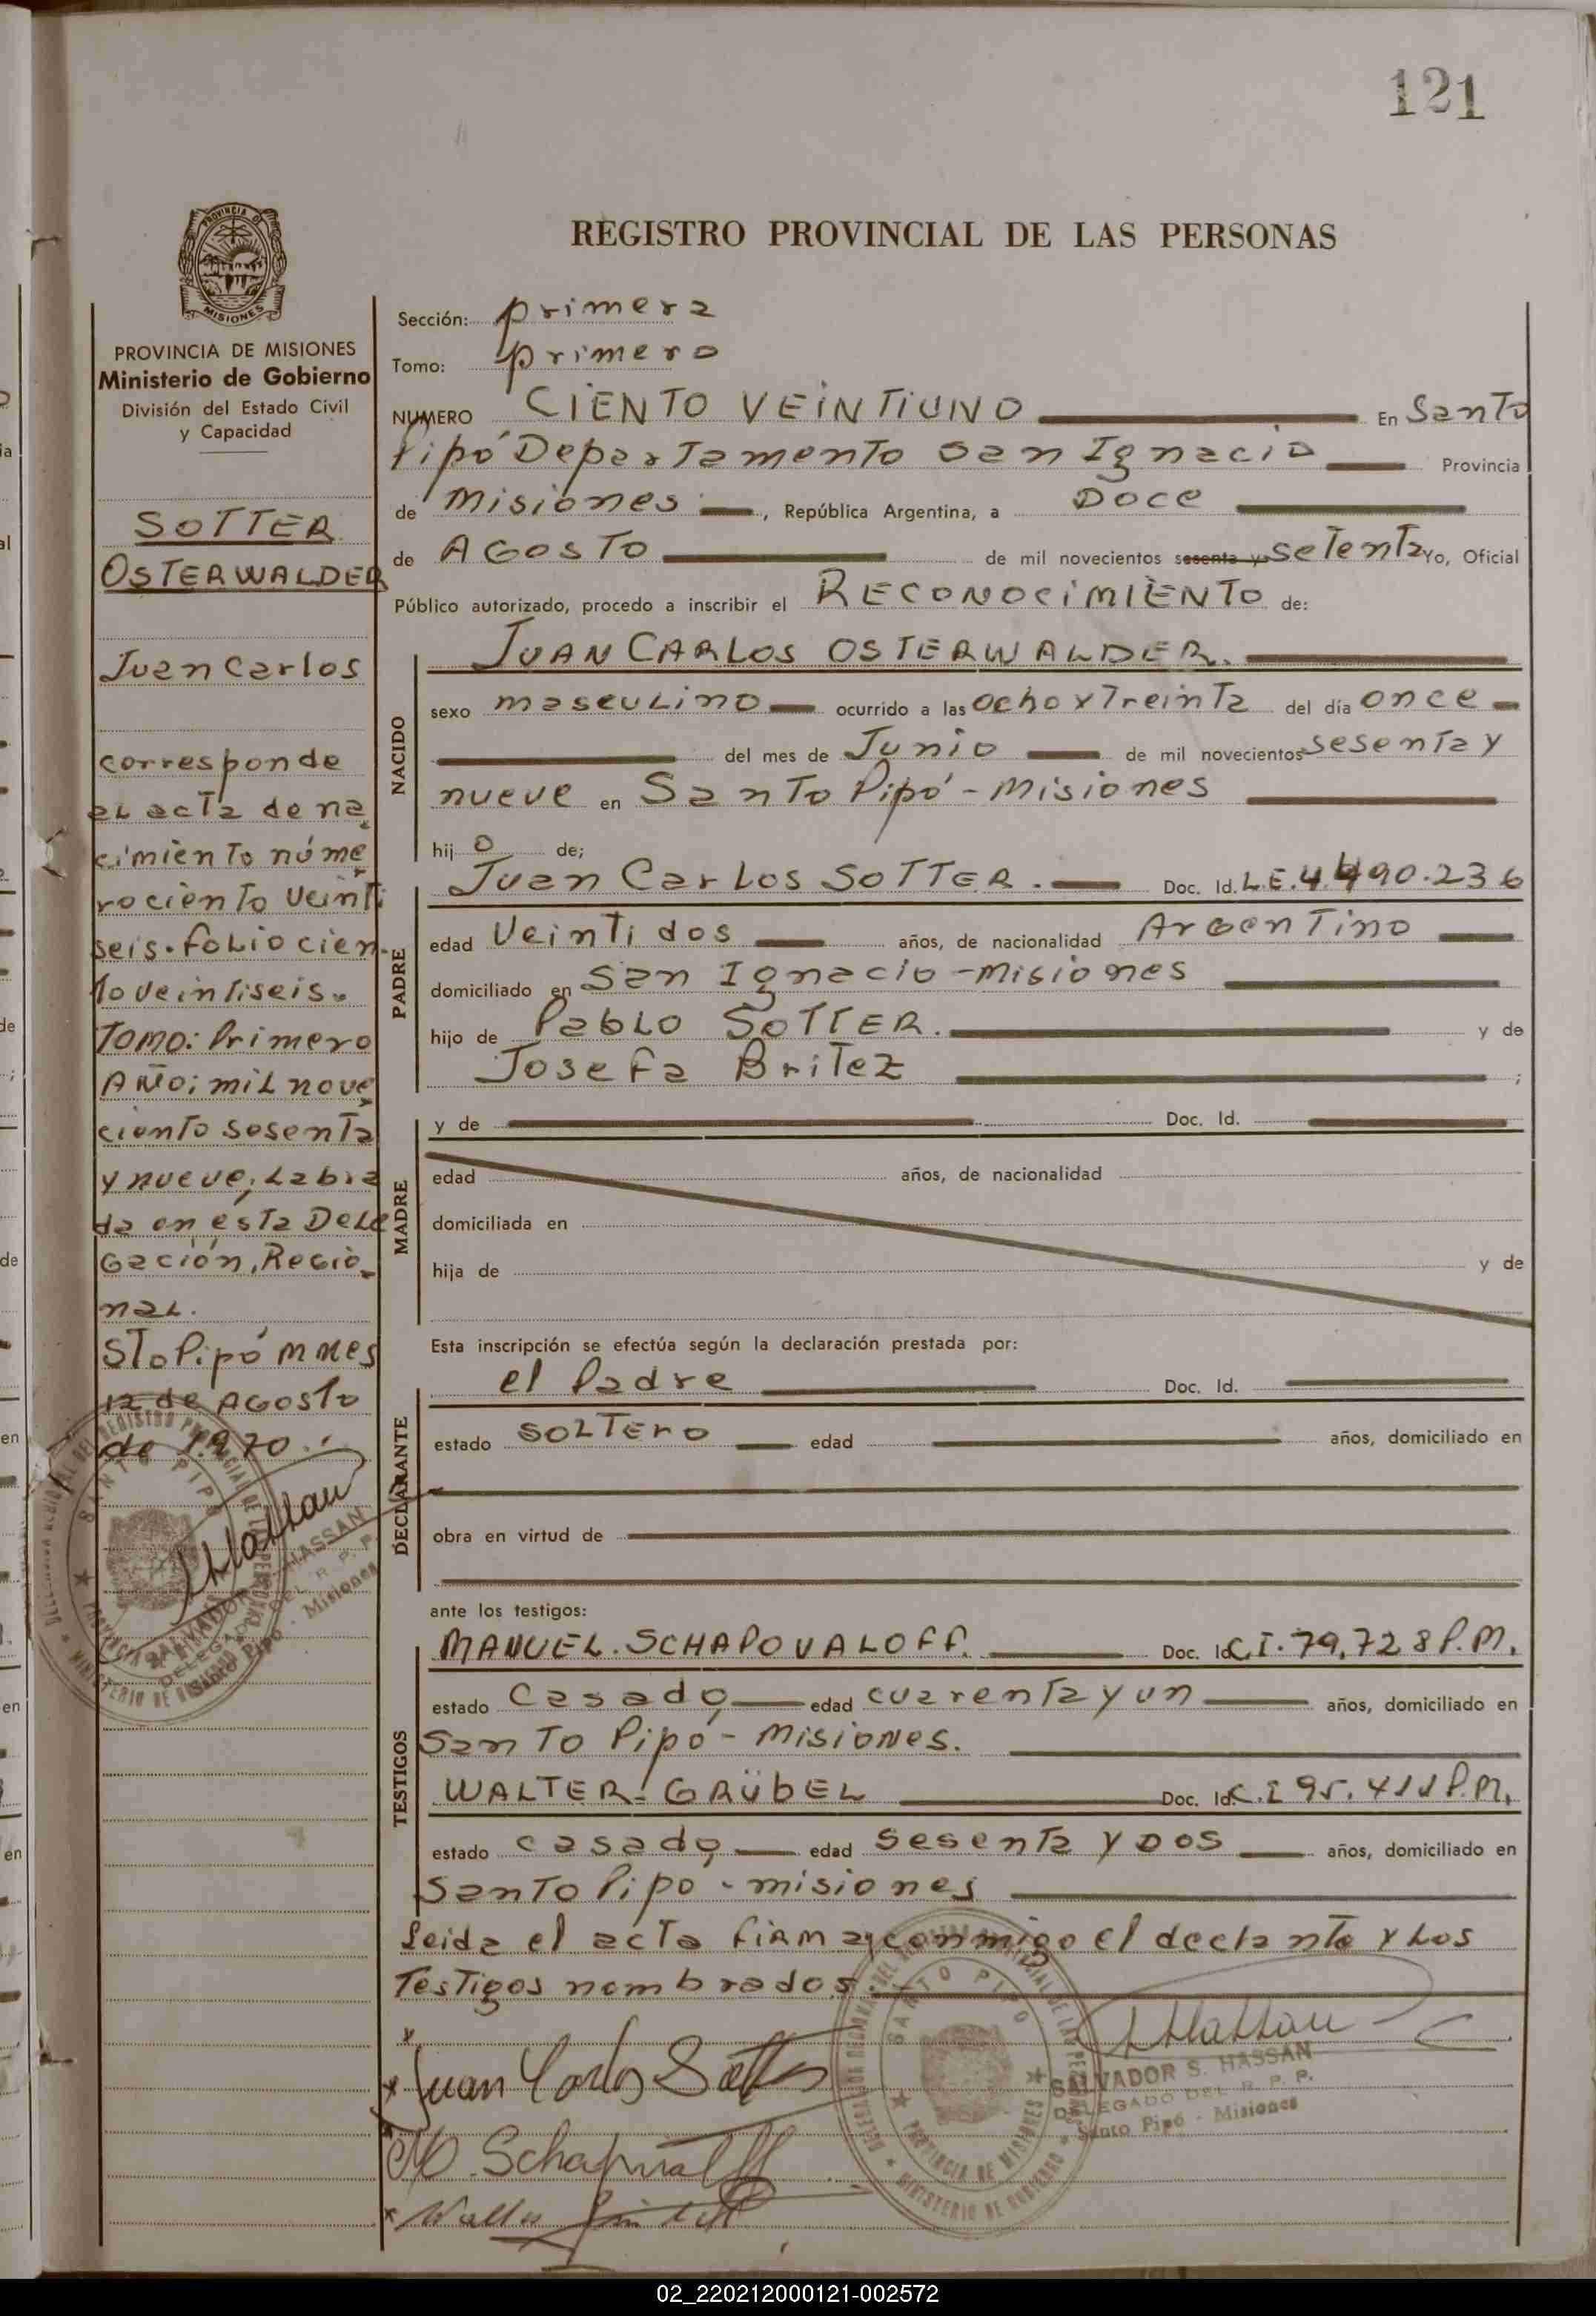 121
PROVINCIA DE MISIONES
PROVINCIA DE MISIONES
Ministerio de Gobierno
División del Estado Civil
y Capacidad
SOTTER
OSTERWALDER
Juan Carlos
corresponde
al acta de na
cimiento núme
ro ciento veinti
seis. folio cien-
to veintiseis.
TOMO: Primero
AÑO: mil nove
ciento sesenta
y nueve, Labra
da en ésta Dele
gación, Regio_
nal.
STo Pipó MNES
12 de AGOSTO
de 1.970.
SALVADOR S. HASSAN
DELEGADO DEL R. P. P.
Santo Pipó - Misiones
REGISTRO PROVINCIAL DE LAS PERSONAS
Sección: primera
Tomo: primero
NUMERO CIENTO VEINTIUNO En Santo
Pipó Departamento San Ignacio Provincia
de Misiones, República Argentina, a DOCE
de AGOSTO de mil novecientos sesenta y setenta Yo, Oficial
Público autorizado, procedo a inscribir el RECONOCIMIENTO de:
NACIDO
JUAN CARLOS OSTERWALDER.
sexo masculino ocurrido a las ocho y Treinta del día once
del mes de Junio de mil novecientos sesenta y
nueve en Santo Pipó - Misiones
hij o de;
PADRE
Juan Carlos SOTTER. Doc. Id. L.E. 4.490.236
edad Veinti dos años, de nacionalidad Argentino
domiciliado en San Ignacio - Misiones
hijo de Pablo SOTTER. y de
Josefa Britez ;
MADRE
y de Doc. Id.
edad años, de nacionalidad
domiciliada en
hija de y de
Esta inscripción se efectúa según la declaración prestada por:
DECLARANTE
el Padre Doc. Id.
estado SOLTERO edad años, domiciliado en
obra en virtud de
ante los testigos:
TESTIGOS
MANUEL. SCHAPOVALOFF. Doc. Id. C.I. 79.728 P.M.
estado Casado edad cuarenta y un años, domiciliado en
Santo Pipó - Misiones.
WALTER GRÜBEL Doc. Id. C.I 95.411 P.M.
estado casado, edad sesenta y DOS años, domiciliado en
Santo Pipó - misiones
Leida el acta firma, conmigo el declante y los
Testigos nombrados.
Juan Carlos Sotter
M. Schapovaloff
Walter
SANTO PIPO
PROVINCIA DE MISIONES
MINISTERIO DE GOBIERNO
SALVADOR S. HASSAN
DELEGADO DEL R. P. P.
Santo Pipó - Misiones
02_220212000121-002572